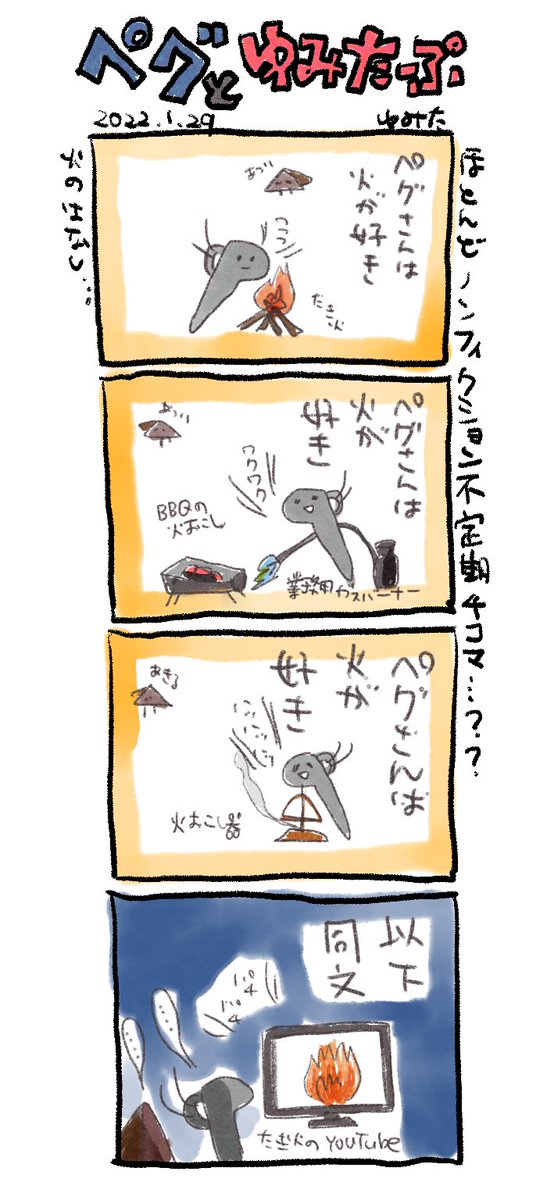 ペグとゆみたーぷ
2022.1.29
ゆみた
ほとんどノンフィクション不定期4コマ…??
火のはなし…。
ペグさんは
火が好き
あつい
ワクワク
たき火
ペグさんは
火が
好き
あつい
ワクワク
BBQの
火おこし
業務用ガスバーナー
ペグさんは
火が
好き
あきる
火おこし器
以下
同文
パチ
パチ
たき火のYouTube